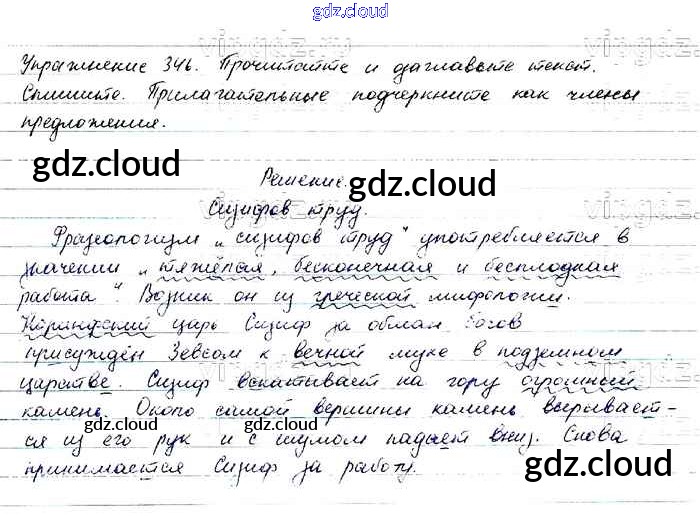 gdz.cloud
Упражнение 346. Прочитайте и озаглавьте текст.
Спишите. Прилагательные подчеркните как члены
предложения.
gdz.cloud
Решение.
gdz.cloud
Сизифов труд.
Фразеологизм „сизифов труд" употребляется в
значении „тяжёлая, бесконечная и бесплодная
работа". Возник он из греческой мифологии.
Коринфский царь Сизиф за обман богов
присуждён Зевсом к вечной муке в подземном
царстве. Сизиф вскатывает на гору огромный
камень. Около самой вершины камень вырывает-
ся из его рук и с шумом падает вниз. Снова
gdz.cloud
gdz.cloud
принимается Сизиф за работу.
gdz.cloud